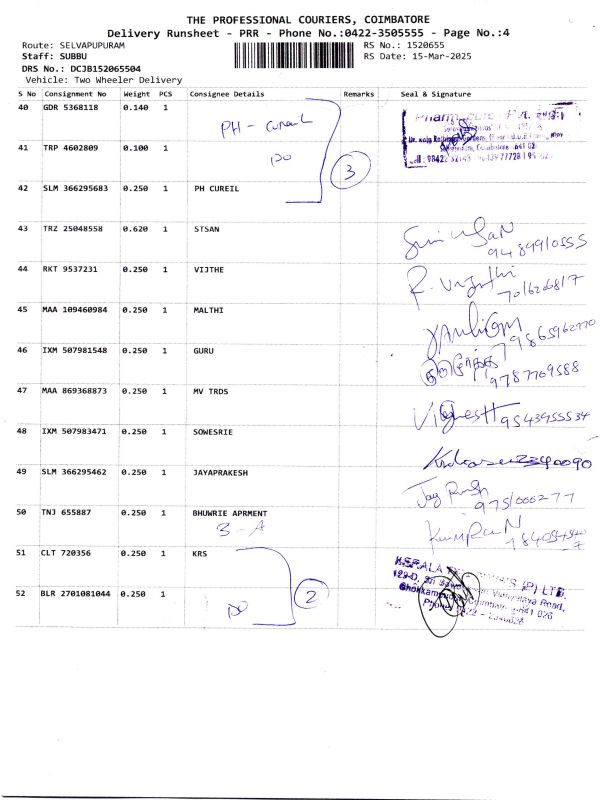 THE PROFESSIONAL COURIERS, COIMBATORE
Delivery Runsheet - PRR - Phone No.:0422-3505555 - Page No.:4
Route: SELVAPUPURAM RS No.: 1520655
Staff: SUBBU RS Date: 15-Mar-2025
DRS No.: DCJB152065504
Vehicle: Two Wheeler Delivery
S No Consignment No Weight PCS Consignee Details Remarks Seal & Signature
40 GDR 5368118 0.140 1 PH - cureil
41 TRP 4602809 0.100 1 DO 3
42 SLM 366295683 0.250 1 PH CUREIL
43 TRZ 25048558 0.620 1 STSAN
44 RKT 9537231 0.250 1 VIJTHE
45 MAA 109460984 0.250 1 MALTHI
46 IXM 507981548 0.250 1 GURU 9787709588
47 MAA 869368873 0.250 1 MV TRDS 9543955534
48 IXM 507983471 0.250 1 SOWESRIE
49 SLM 366295462 0.250 1 JAYAPRAKESH
50 TNJ 655887 0.250 1 BHUWRIE APRMENT
3 - A
51 CLT 720356 0.250 1 KRS
52 BLR 2701081044 0.250 1 DO 2